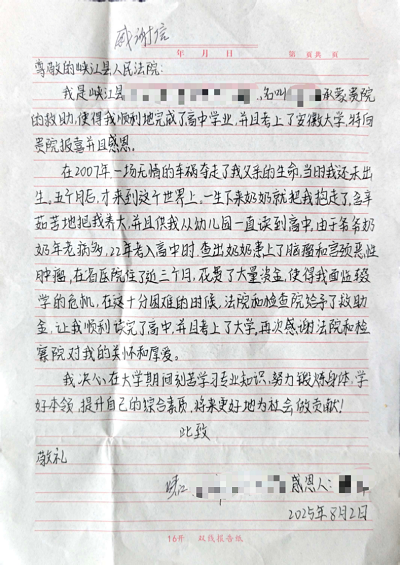 感谢信
年 月 日 第 页共 页
尊敬的峡江县人民法院:
我是峡江县 ,名叫 承蒙贵院
的救助,使得我顺利地完成了高中学业,并且考上了安徽大学,特向
贵院报喜并且感恩。
在2007年一场无情的车祸夺走了我父亲的生命,当时我还未出
生。五个月后,才来到这个世界上,一生下来奶奶就把我抱走了,含辛
茹苦地把我养大,并且供我从幼儿园一直读到高中,由于爷爷奶
奶年老病多,22年考入高中时,查出奶奶患上了脑瘤和宫颈恶性
肿瘤,在省医院住了近三个月,花费了大量资金,使得我面临辍
学的危机,在这十分困难的时候,法院和检查院给予了救助
金,让我顺利读完了高中,并且考上了大学,再次感谢法院和检
察院对我的关怀和厚爱。
我决心在大学期间刻苦学习专业知识,努力锻炼身体,学
好本领,提升自己的综合素质,将来更好地为社会做贡献!
此致
敬礼
峡江 感恩人:
2025年8月2日
16开 双线报告纸